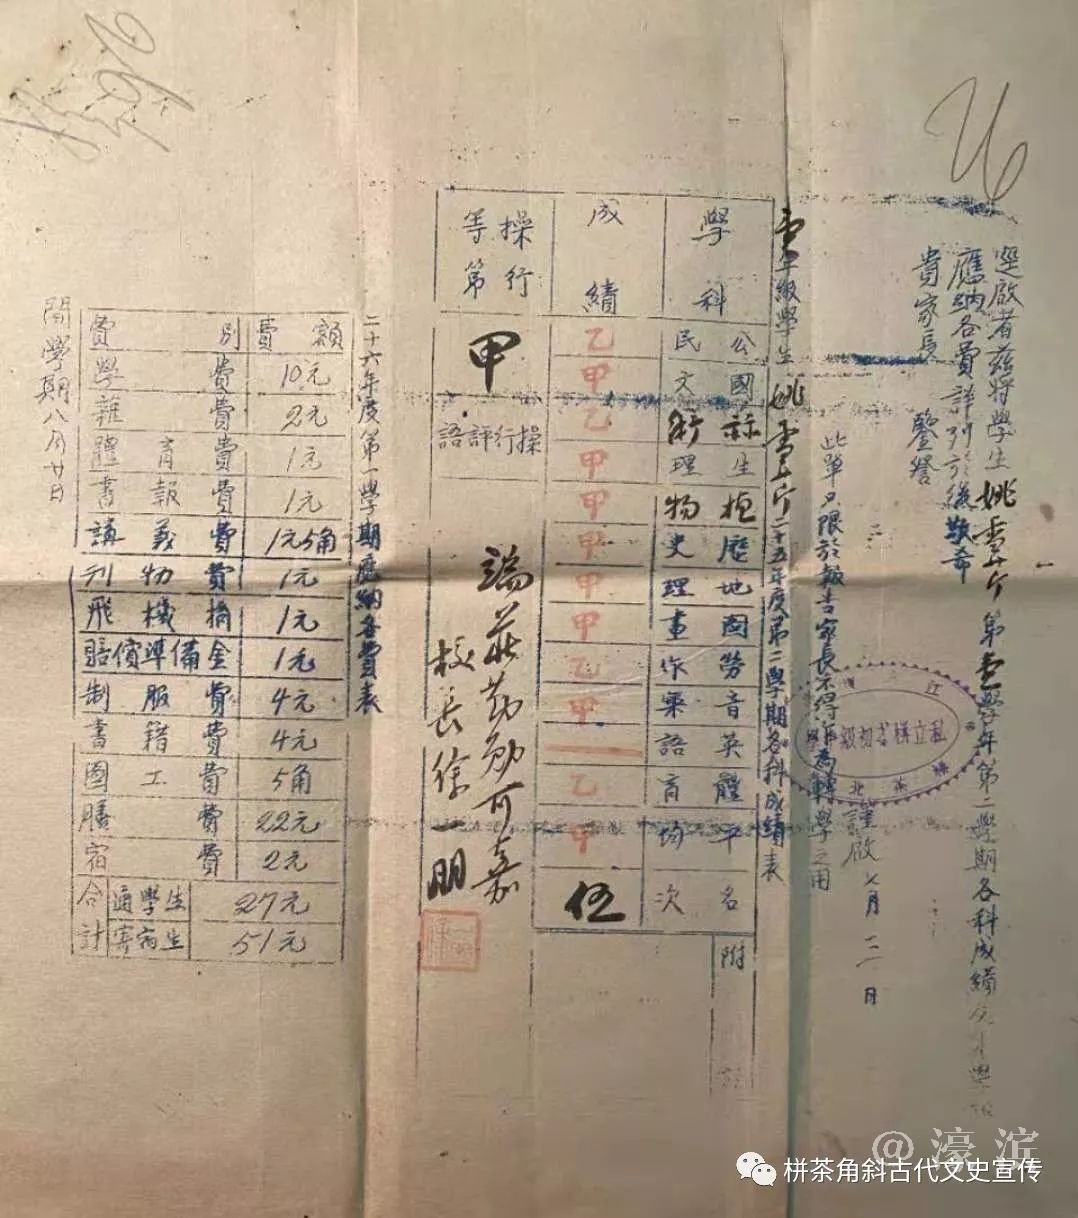 逕啟者茲將學生姚雪斤第壹學年第二學期各科成績及下學期
應納各費詳列於後敬希
貴家長 鑒詧
此單只限於報告家長不得作為轉學之用
謹啟 七月 三 日
私立栟茶初級
壹年級學生姚雪斤二十五年度第二學期各科成績表
學科 成績 操行等第
公民 乙
國文 甲
算術 乙
生理 甲
植物 甲
歷史 甲
地理 甲
圖畫 甲
勞作 乙
音樂 甲
英語
體育 乙
平均 甲
名次 伍
附
甲
操行評語
端莊勤勉可嘉
校長徐一朋
二十六年度第一學期應納各費表
費別 費額
學費 10元
雜費 2元
體育費 1元
書報費 1元
講義費 1元5角
刊物費 1元
飛機捐 1元
賠償準備金 1元
制服費 4元
書籍費 4元
圖工費 5角
膳費 22元
宿費 2元
合計
通學生 27元
寄宿生 51元
開學期八月廿日
@濠滨
栟茶角斜古代文史宣传